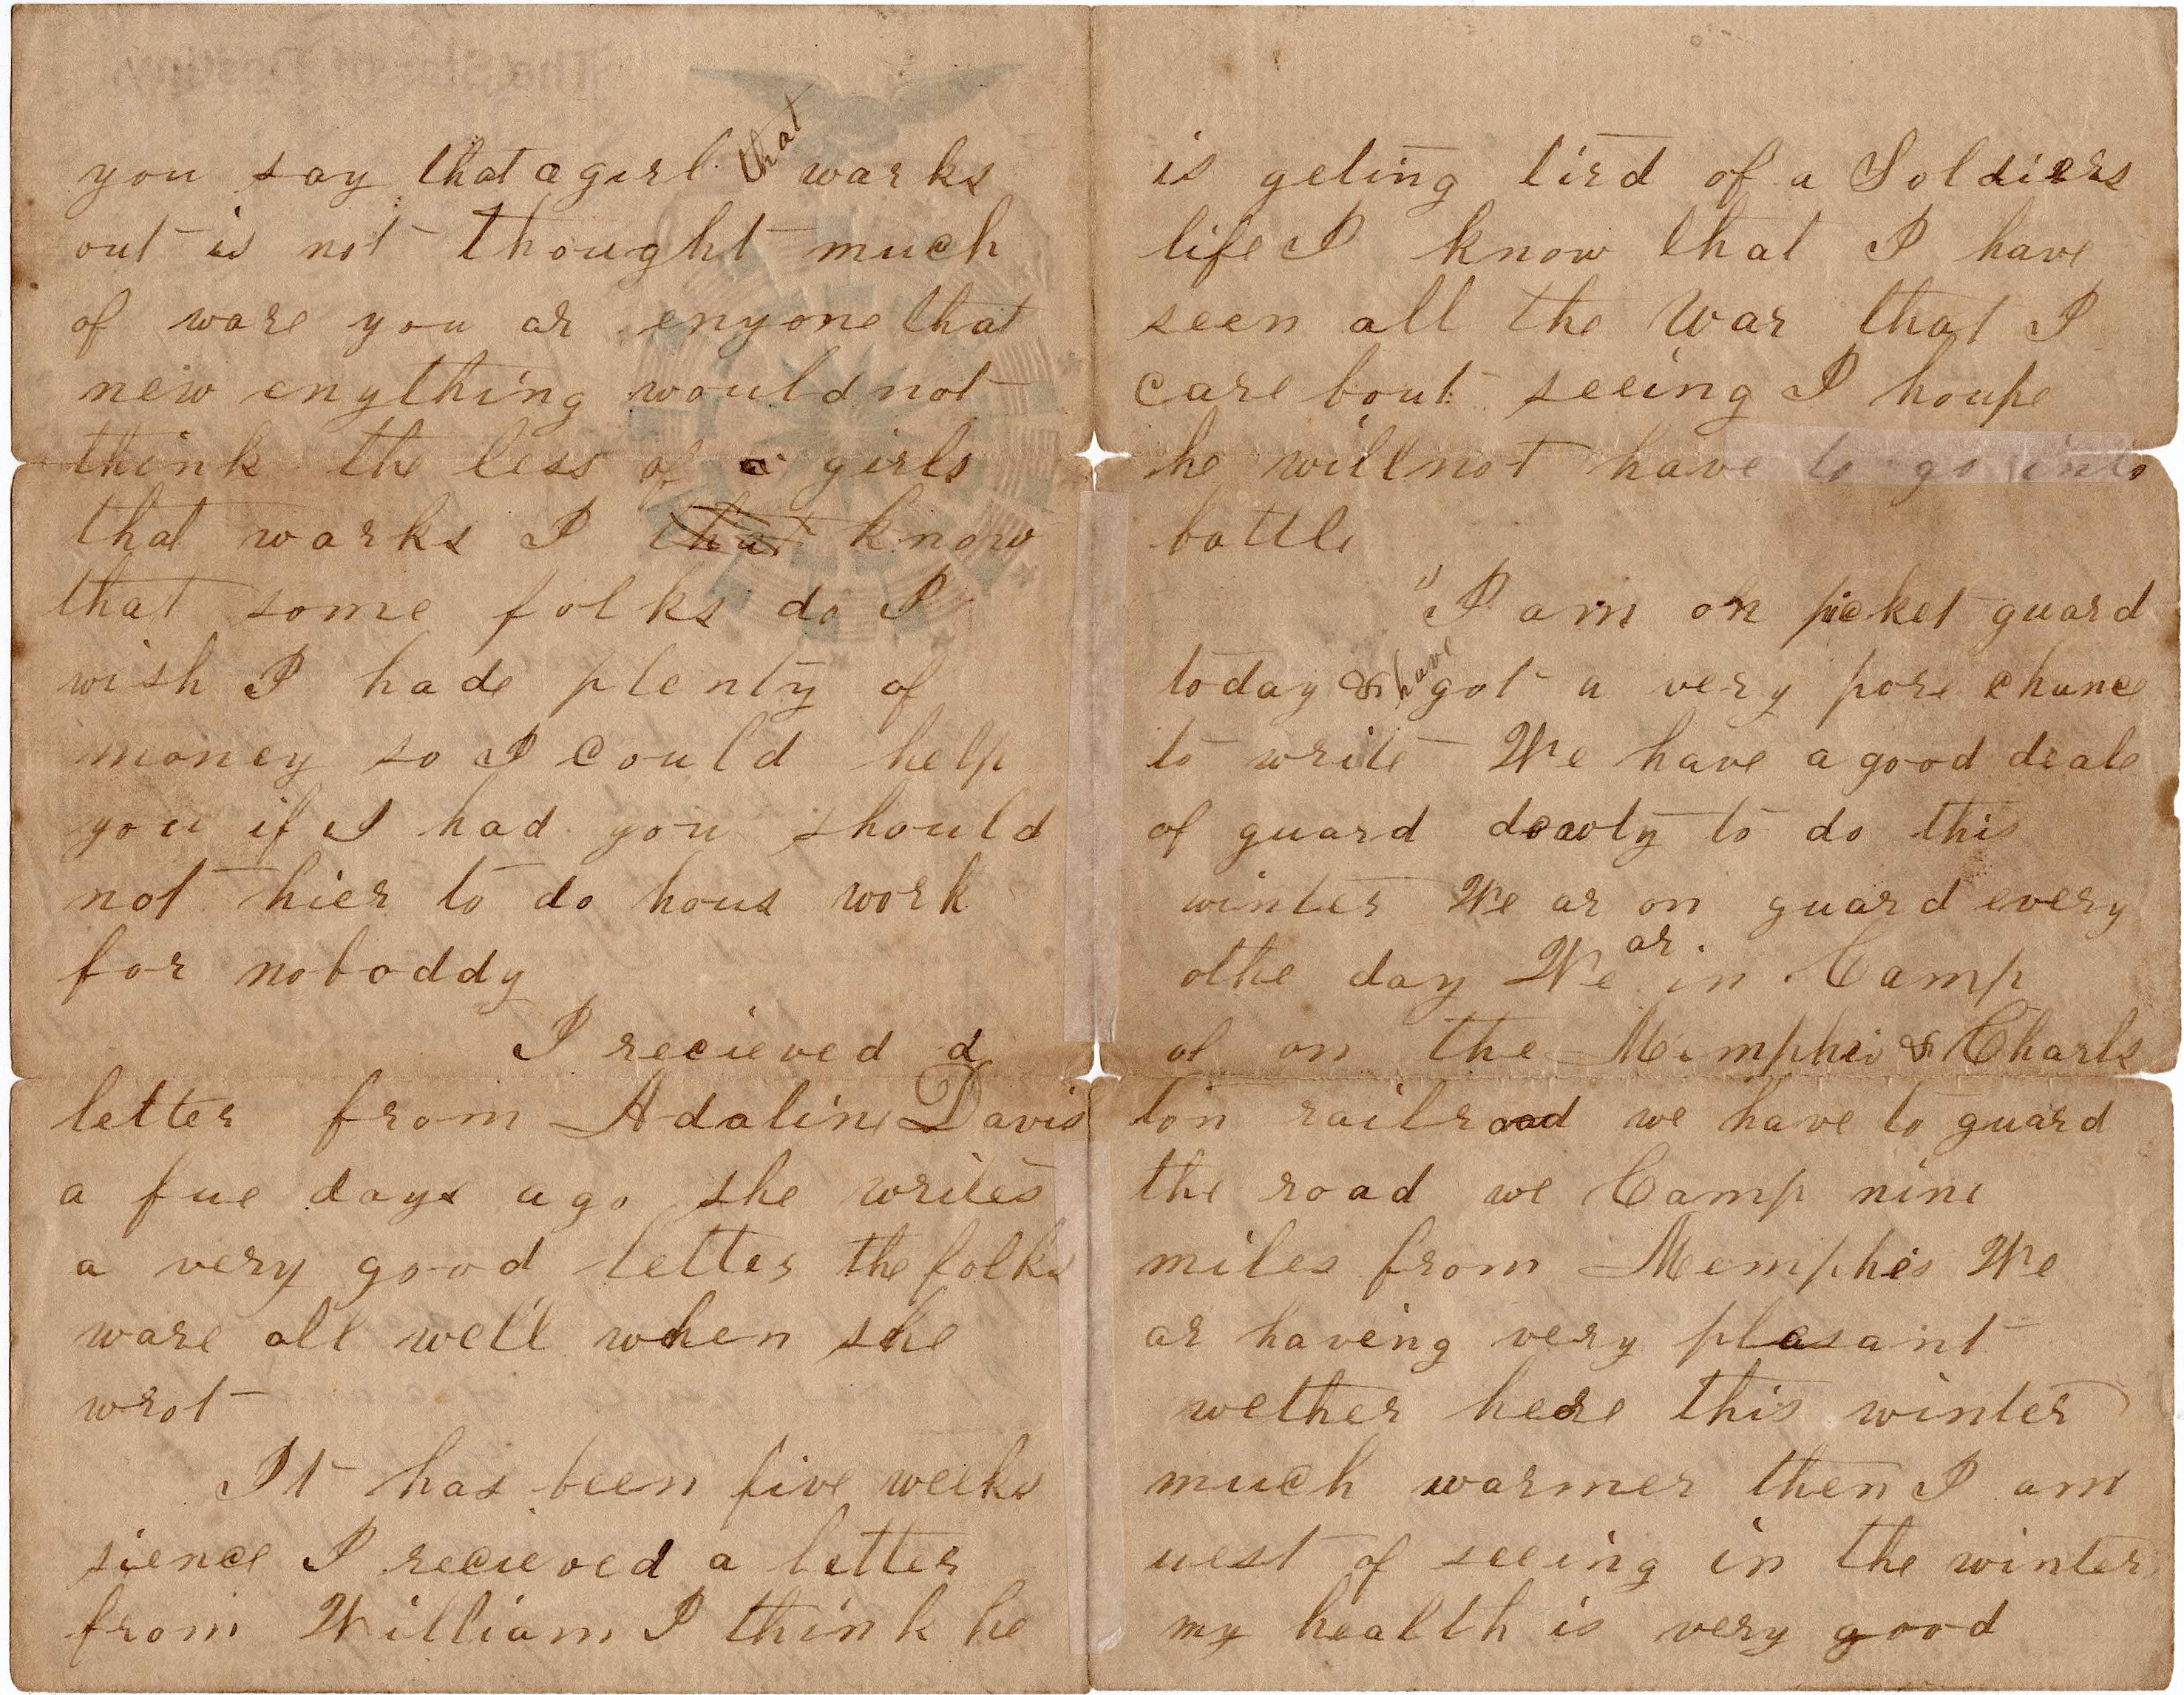 you say that a girl that warks
out is not thought much
of ware you ar enyone that
new enything would not
think the less of a girls
that warks I that know
that some folks do I
wish I hade plenty of
money so I could help
you if I had you should
not hier to do hous work
for noboddy
I recieved a
letter from Adaline Davis
a fue days ago she writes
a very good letter the folks
ware all well when she
wrot
It has been five weeks
sience I recieved a letter
from William I think he
is geting tird of a Soldiers
life I know that I have
seen all the War that I
care bout seeing I houpe
he will not have to go into
battle
"I am on picket guard
today & have got a very pore chance
to write We have a good deale
of guard to do this
winter We ar on guard every
othe day We ar in Camp
of on the Memphis & Charls
ton railroad we have to guard
the road we Camp nine
miles from Memphis We
ar having very plesant
wether here this winter
much warmer then I am
uest of seeing in the winter
my health is very good